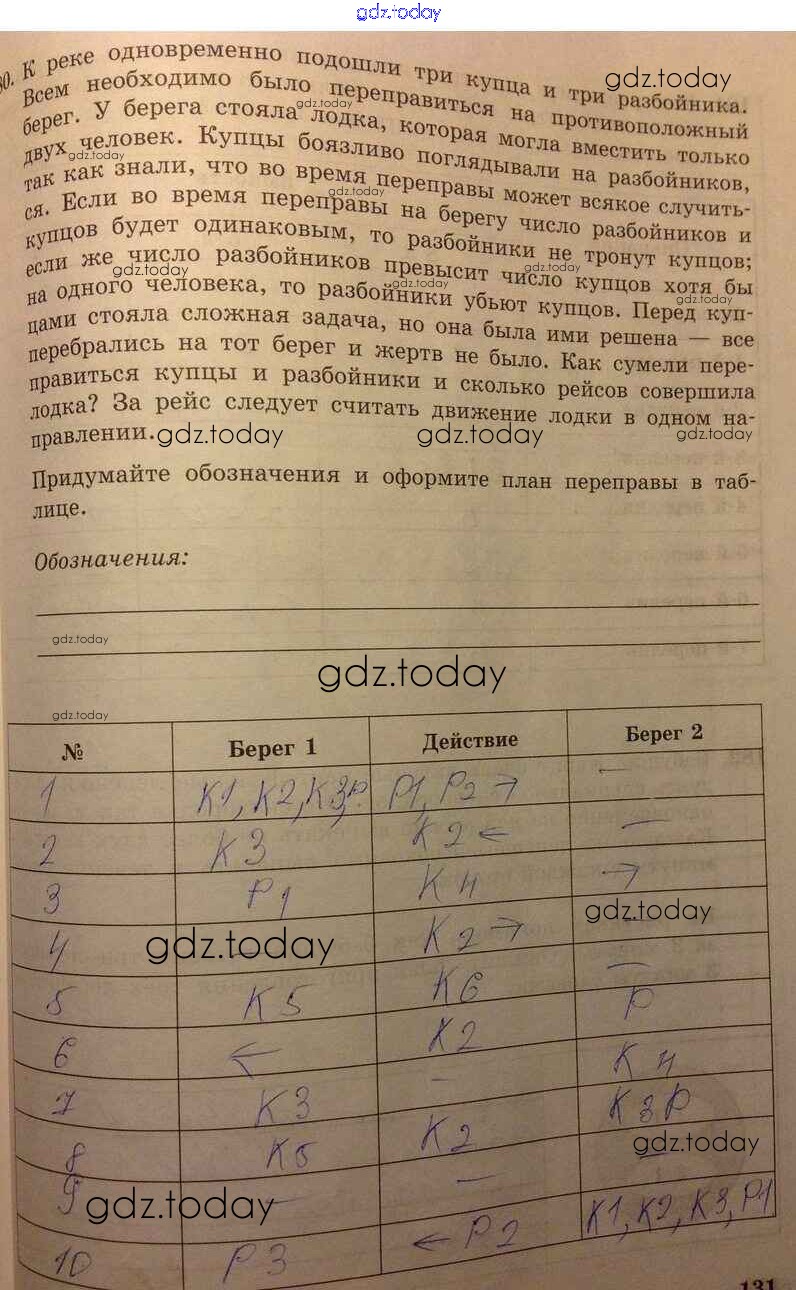 gdz.today
30. К реке одновременно подошли три купца и три разбойника.
Всем необходимо было переправиться на противоположный
берег. У берега стояла лодка, которая могла вместить только
двух человек. Купцы боязливо поглядывали на разбойников,
так как знали, что во время переправы может всякое случить-
ся. Если во время переправы на берегу число разбойников и
купцов будет одинаковым, то разбойники не тронут купцов;
если же число разбойников превысит число купцов хотя бы
на одного человека, то разбойники убьют купцов. Перед куп-
цами стояла сложная задача, но она была ими решена — все
перебрались на тот берег и жертв не было. Как сумели пере-
правиться купцы и разбойники и сколько рейсов совершила
лодка? За рейс следует считать движение лодки в одном на-
правлении.
gdz.today gdz.today gdz.today
Придумайте обозначения и оформите план переправы в таб-
лице.
Обозначения:
gdz.today
gdz.today
gdz.today
№ Берег 1 Действие Берег 2
1 К1, К2, К3, Р. Р1, Р2 → ←
2 К3 К2 ← —
3 Р1 К4 →
gdz.today
4 К2 → —
gdz.today
5 К5 К6 Р
6 ← К2 К4
7 К3 — К3Р
8 К5 К2 —
gdz.today
9 — — К1, К2, К3, Р1
gdz.today
10 Р3 ← Р2
131